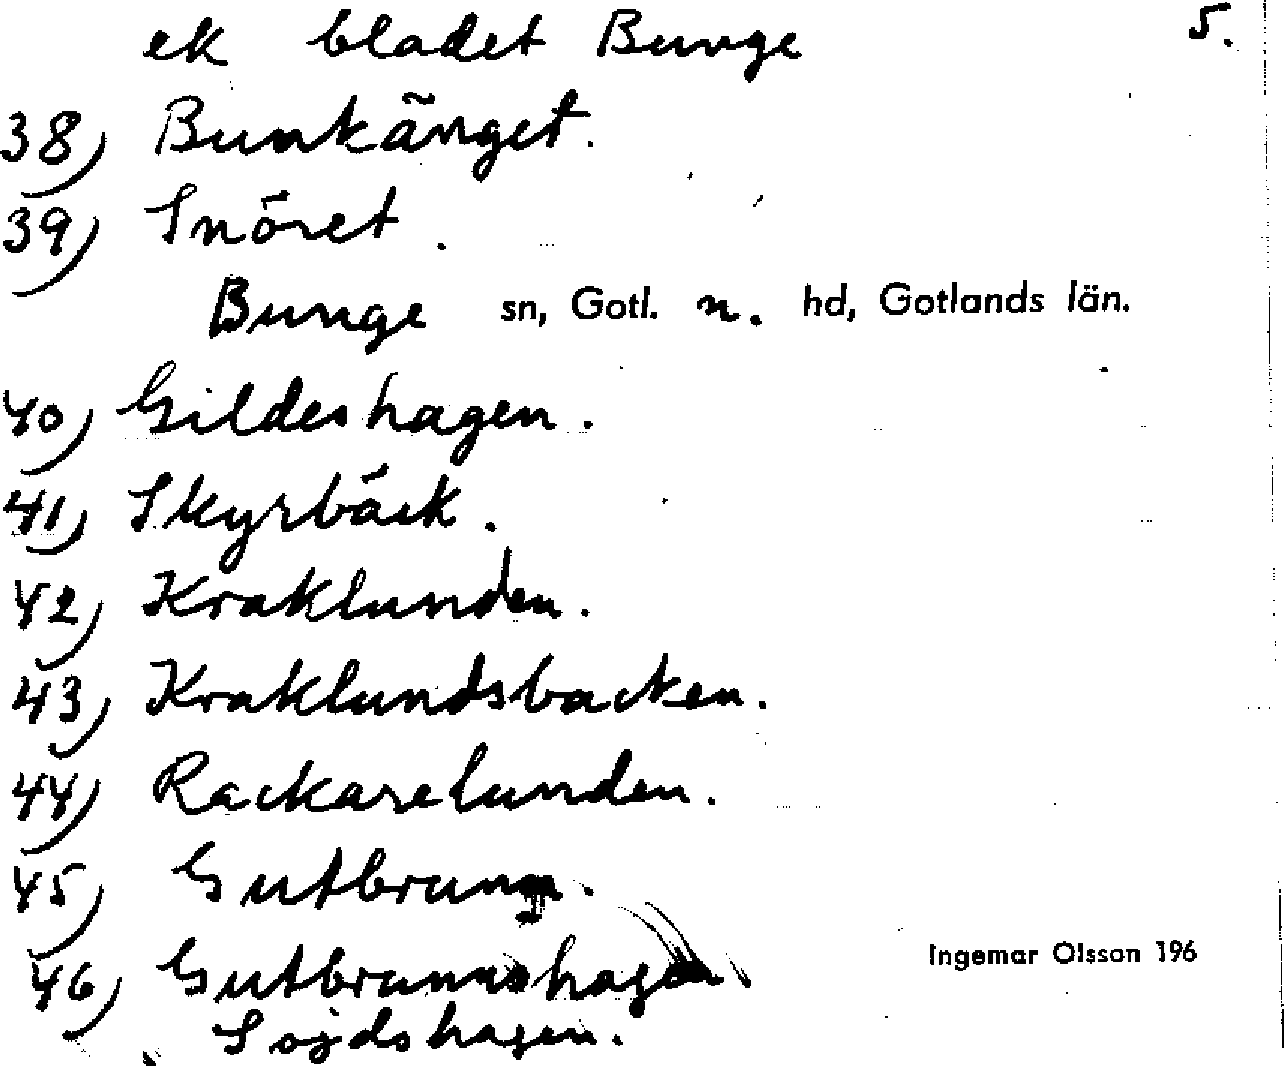 ek bladet Bunge 5.
38) Bunkänget.
39) Snöret.
Bunge sn, Gotl. n. hd, Gotlands län.
40) Gildeshagen.
41) Skyrbäck.
42) Kraklunden.
43) Kraklundsbacken.
44) Rackarelunden.
45) Gutbrunn.
46) Gutbrunnshagen.
Sojdshagen.
Ingemar Olsson 196